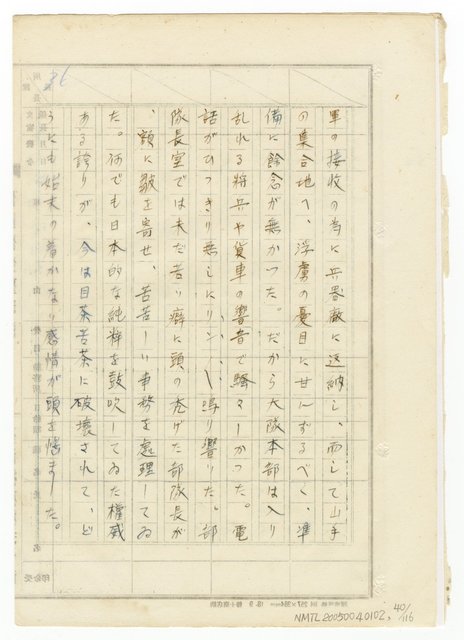 軍の接收の当に兵器廠に返納し、而して山手
の集合地へ、浮虜の憂目に甘んずるべく、準
備に餘念が無かつた。だから大隊本部は入り
乱れる将兵や貨車の響音で騒々しかつた。電
話がひつきり無しにリンリン鳴り響いた。部
隊長室では未だ苦い癖に頭の禿げた部隊長が
、額に皺を寄せ、苦苦しい事務を処理してゐ
た。何でも日本的な純粋を鼓吹してゐた権威
ある誇りが、今は目茶苦茶に破壊されて、ど
うにも始末の着かない感情が頭を悩ました。
NMTL20050040102, 40/116